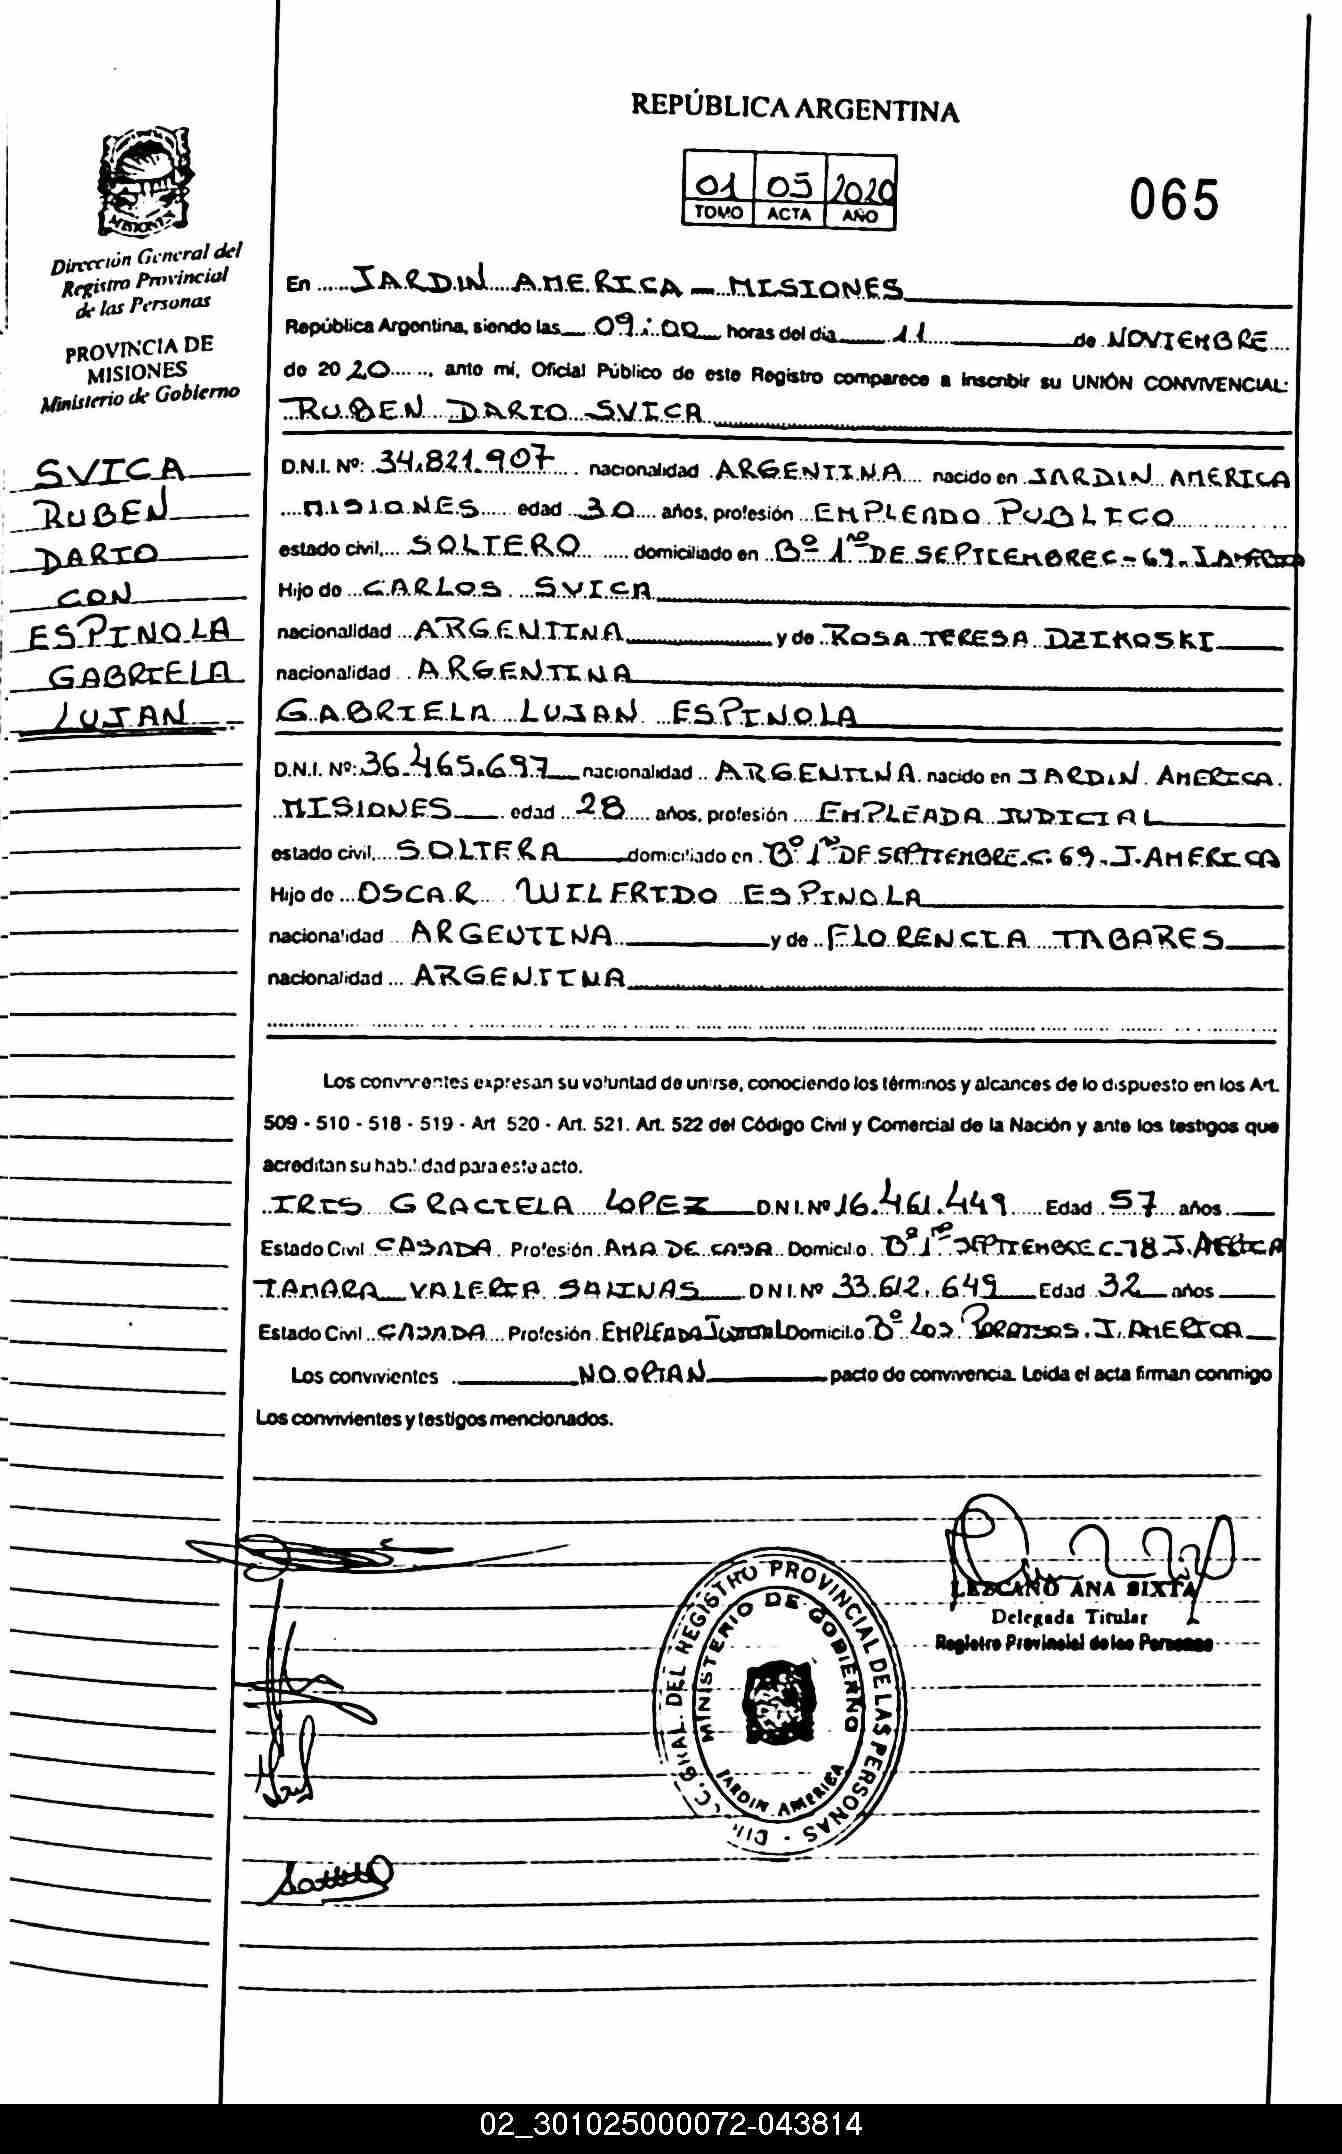 REPÚBLICA ARGENTINA
01 05 2020
TOMO ACTA AÑO
065
MISIONES
Dirección General del
Registro Provincial
de las Personas
PROVINCIA DE
MISIONES
Ministerio de Gobierno
SVICA
RUBEN
DARIO
CON
ESPINOLA
GABRIELA
LUJAN
En JARDIN AMERICA - MISIONES
República Argentina, siendo las 09:00 horas del día 11 de NOVIEMBRE
de 2020, ante mí, Oficial Público de este Registro comparece a inscribir su UNIÓN CONVIVENCIAL:
RUBEN DARIO SVICA
D.N.I. Nº: 34.821.907 nacionalidad ARGENTINA nacido en JARDIN AMERICA
MISIONES edad 30 años, profesión EMPLEADO PUBLICO
estado civil, SOLTERO domiciliado en Bº 1ro DE SEPTIEMBRE C-69-J AMERICA
Hijo de CARLOS SVICA
nacionalidad ARGENTINA y de ROSA TERESA DZIKOSKI
nacionalidad ARGENTINA
GABRIELA LUJAN ESPINOLA
D.N.I. Nº: 36.465.697 nacionalidad ARGENTINA nacido en JARDIN AMERICA.
MISIONES edad 28 años, profesión EMPLEADA JUDICIAL
estado civil, SOLTERA domiciliado en Bº 1ro DE SEPTIEMBRE C.69-J.AMERICA
Hijo de OSCAR WILFRIDO ESPINOLA
nacionalidad ARGENTINA y de FLORENCIA TABARES
nacionalidad ARGENTINA
Los convivientes expresan su voluntad de unirse, conociendo los términos y alcances de lo dispuesto en los Art.
509 - 510 - 518 - 519 - Art 520 - Art. 521. Art. 522 del Código Civil y Comercial de la Nación y ante los testigos que
acreditan su habilidad para este acto.
IRIS GRACIELA LOPEZ D.N.I. Nº 16.461.449 Edad 57 años
Estado Civil CASADA Profesión AMA DE CASA Domicilio Bº 1ro SEPTIEMBRE C-78 J.AMERICA
TAMARA VALERIA SALINAS D.N.I. Nº 33.612.649 Edad 32 años
Estado Civil CASADA Profesión EMPLEADA JUDICIAL Domicilio Bº LOS J. AMERICA
Los convivientes NO OPTAN pacto de convivencia. Leida el acta firman conmigo
Los convivientes y testigos mencionados.
LEZCANO ANA SIXTA
Delegada Titular
Registro Provincial de las Personas
GRAL. DEL REGISTRO PROVINCIAL DE LAS PERSONAS
MINISTERIO DE GOBIERNO
JARDIN AMERICA
02_301025000072-043814